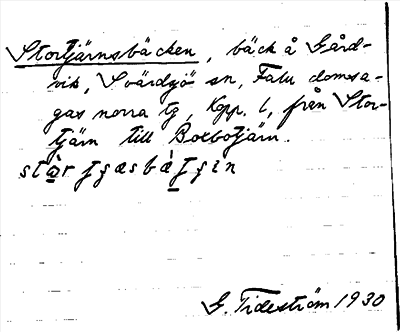 Stortjärnsbäcken, bäck å Gård-
vik, Svärdsjö sn, Falu domsa-
gas norra tg, kpp. l, från Stor-
tjärn till Boxbotjärn.
G. Tideström 1930